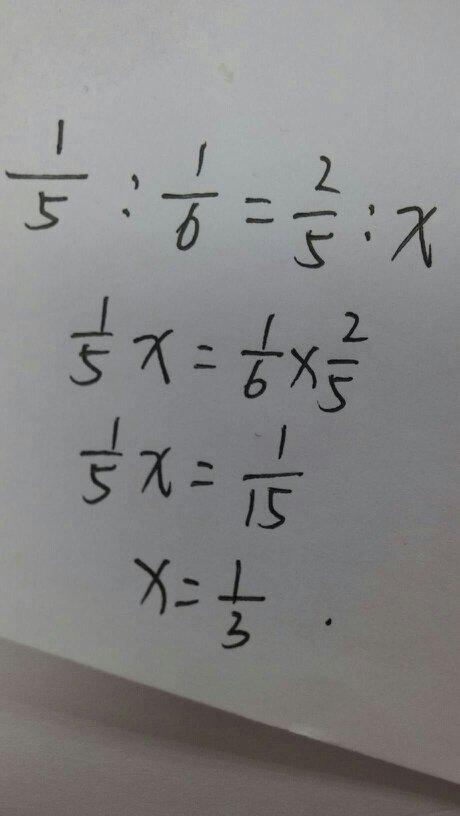 1/5 : 1/6 = 2/5 : x
1/5 x = 1/6 × 2/5
1/5 x = 1/15
x = 1/3 .